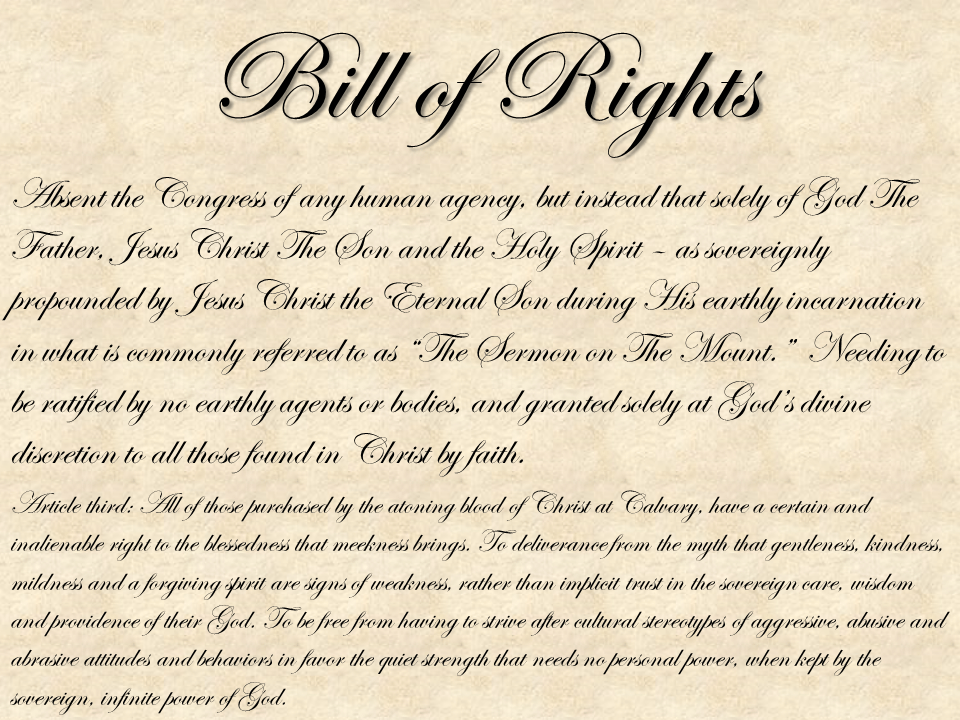 Bill of Rights
Absent the Congress of any human agency, but instead that solely of God The
Father, Jesus Christ The Son and the Holy Spirit – as sovereignly
propounded by Jesus Christ the Eternal Son during His earthly incarnation
in what is commonly referred to as “The Sermon on The Mount.” Needing to
be ratified by no earthly agents or bodies, and granted solely at God’s divine
discretion to all those found in Christ by faith.
Article third: All of those purchased by the atoning blood of Christ at Calvary, have a certain and
inalienable right to the blessedness that meekness brings. To deliverance from the myth that gentleness, kindness,
mildness and a forgiving spirit are signs of weakness, rather than implicit trust in the sovereign care, wisdom
and providence of their God. To be free from having to strive after cultural stereotypes of aggressive, abusive and
abrasive attitudes and behaviors in favor the quiet strength that needs no personal power, when kept by the
sovereign, infinite power of God.